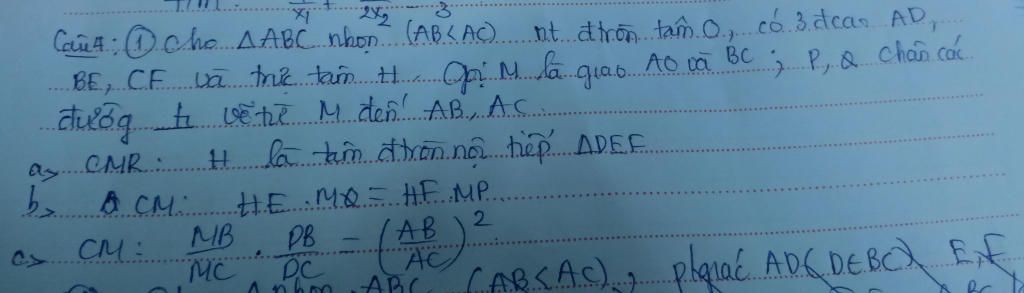 x₁ + 2x₂ - 3
Câu 4: ① Cho ΔABC nhọn (AB<AC) nt đtròn tâm O, có 3 đcao AD,
BE, CF và trực tâm H. Gọi M là giao AO và BC ; P, Q chân các
đường ⊥ vẽ từ M đến AB, AC.
a> CMR: H là tâm đtròn nội tiếp ΔDEF
b> CM: HE . MQ = HF . MP
c> CM: MB/MC . DB/DC = (AB/AC)²
nhọn ABC (AB<AC), pgiác AD (D∈BC) E, F